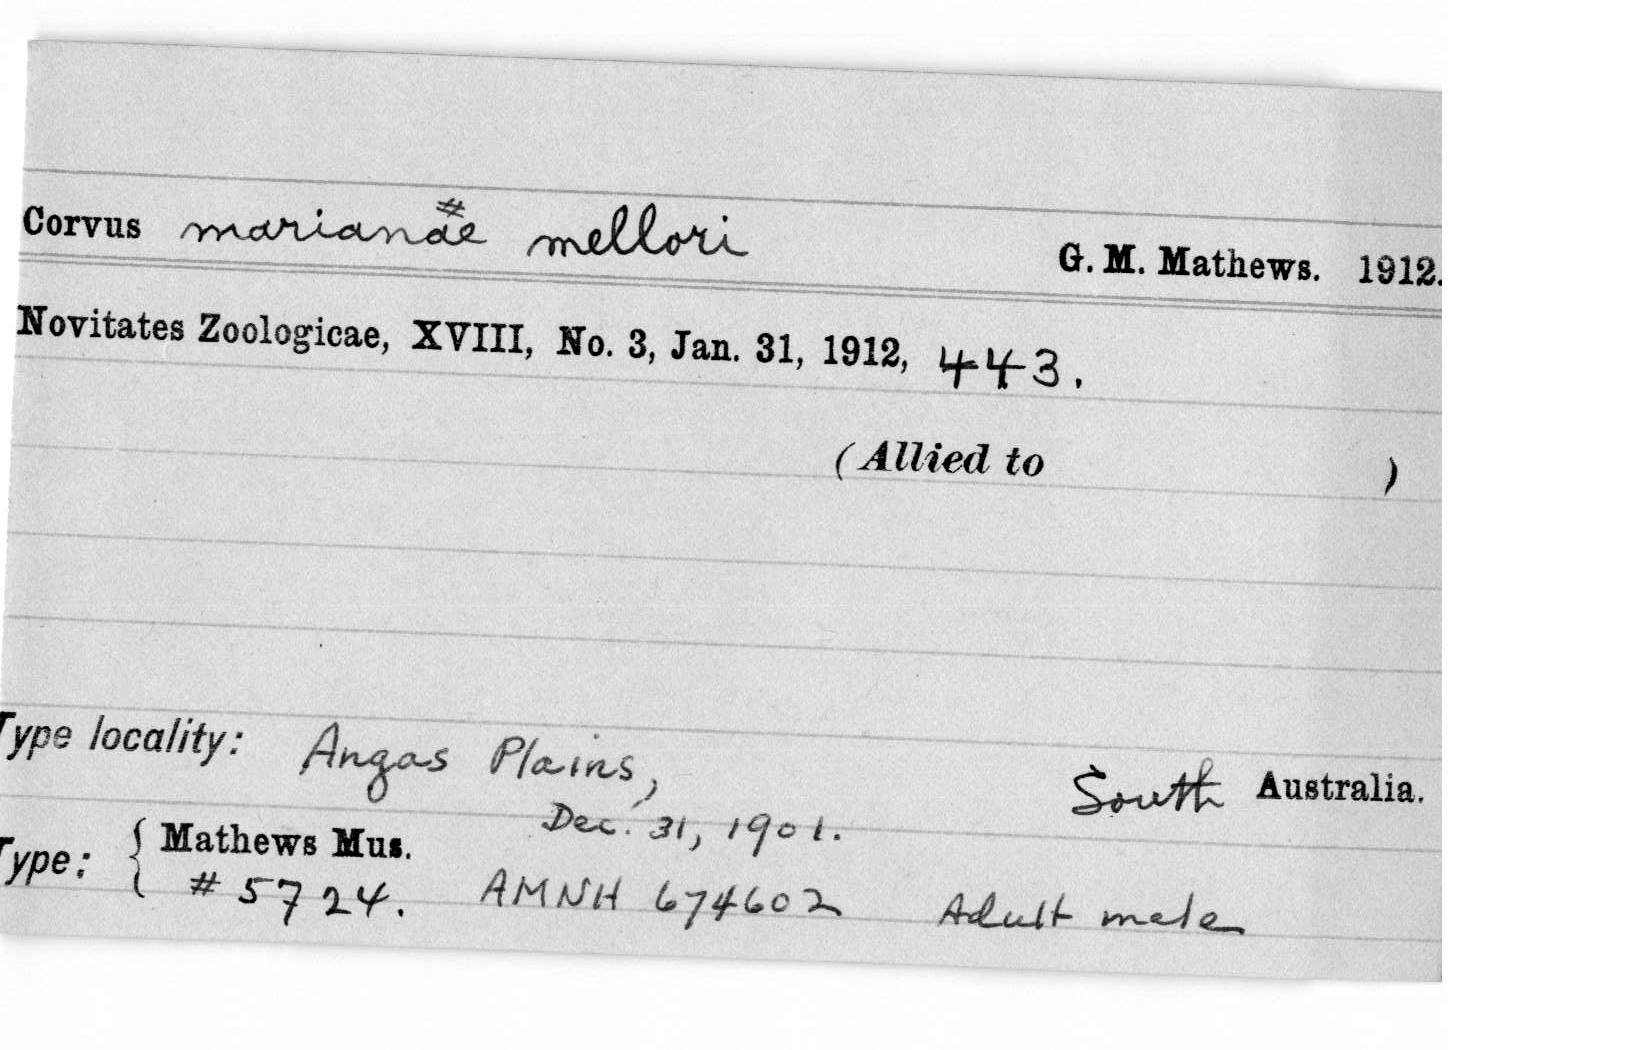 Corvus marianae mellori G. M. Mathews. 1912.
#
Novitates Zoologicae, XVIII, No. 3, Jan. 31, 1912, 443.
(Allied to )
Type locality: Angas Plains, South Australia.
Dec. 31, 1901.
Type: { Mathews Mus.
# 5724. AMNH 674602 Adult male